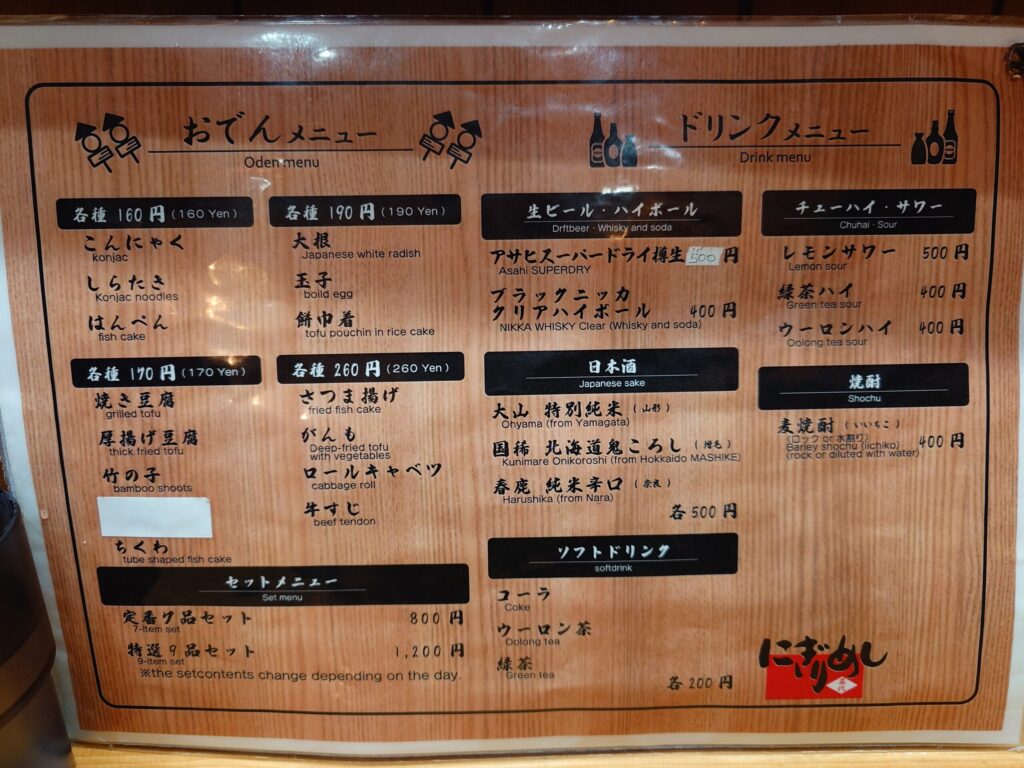 おでんメニュー
Oden menu
各種 160 円 (160 Yen)
こんにゃく
konjac
しらたき
Konjac noodles
はんぺん
fish cake
各種 190 円 (190 Yen)
大根
Japanese white radish
玉子
boild egg
餅巾着
tofu pouchin in rice cake
各種 170 円 (170 Yen)
焼き豆腐
grilled tofu
厚揚げ豆腐
thick fried tofu
竹の子
bamboo shoots
ちくわ
tube shaped fish cake
各種 260 円 (260 Yen)
さつま揚げ
fried fish cake
がんも
Deep-fried tofu
with vegetables
ロールキャベツ
cabbage roll
牛すじ
beef tendon
セットメニュー
Set menu
定番7品セット 800 円
7-item set
特選9品セット 1,200 円
9-item set
※the setcontents change depending on the day.
ドリンクメニュー
Drink menu
生ビール・ハイボール
Drftbeer・Whisky and soda
アサヒスーパードライ樽生 500 円
Asahi SUPERDRY
ブラックニッカ
クリアハイボール 400 円
NIKKA WHISKY Clear (Whisky and soda)
日本酒
Japanese sake
大山 特別純米 (山形)
Ohyama (from Yamagata)
国稀 北海道鬼ころし (増毛)
Kunimare Onikoroshi (from Hokkaido MASHIKE)
春鹿 純米辛口 (奈良)
Harushika (from Nara)
各 500 円
ソフトドリンク
softdrink
コーラ
Coke
ウーロン茶
Oolong tea
緑茶
Green tea
各 200 円
チューハイ・サワー
Chuhai・Sour
レモンサワー 500 円
Lemon sour
緑茶ハイ 400 円
Green tea sour
ウーロンハイ 400 円
Oolong tea sour
焼酎
Shochu
麦焼酎 (いいちこ) 400 円
(ロック or 水割り)
Barley shochu (iichiko)
(rock or diluted with water)
にぎりめし